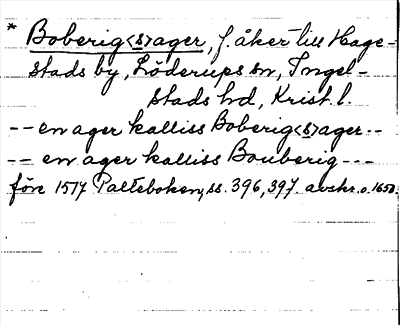 * Boberig<s>ager, f. åker till Hage-
stads by, Löderups sn, Ingel-
stads hd, Krist. l.
-- en ager kalliss Boberig<s>ager --
-- en ager kalliss Bouberig ---
före 1517 Palteboken, ss. 396, 397 avskr. o. 1650.